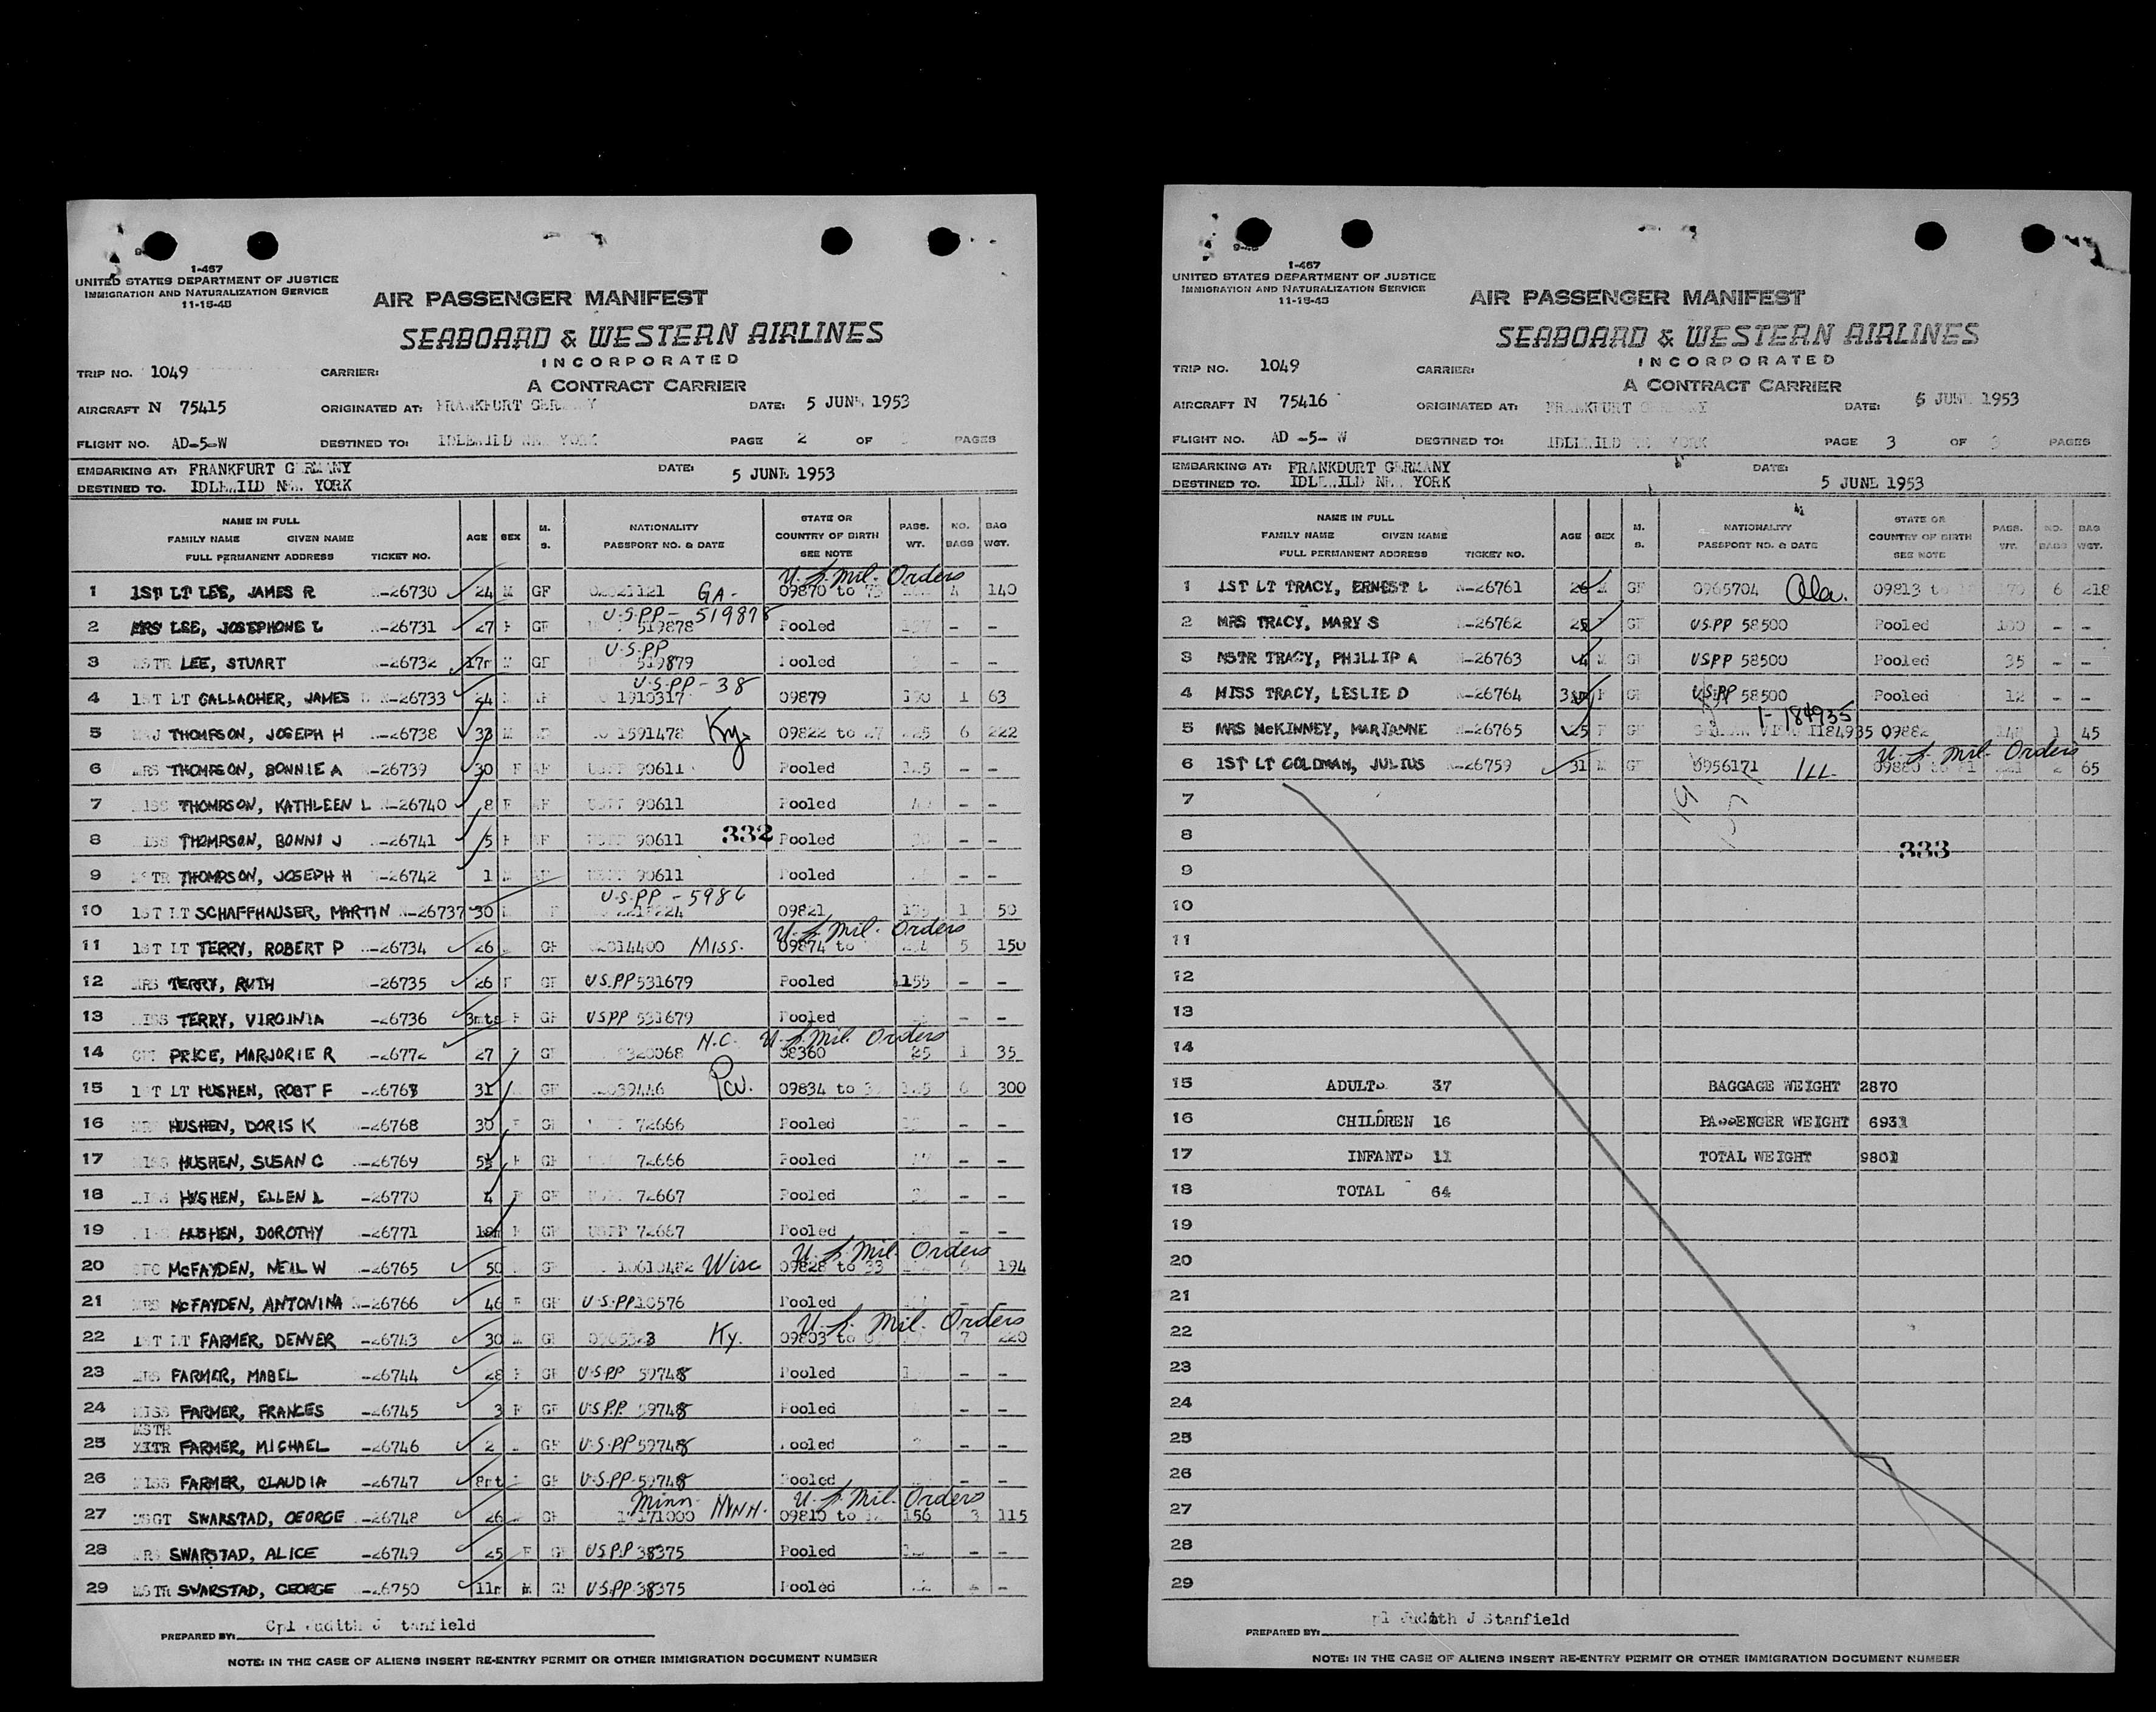 1-467
UNITED STATES DEPARTMENT OF JUSTICE
IMMIGRATION AND NATURALIZATION SERVICE
11-15-45
AIR PASSENGER MANIFEST
SEABOARD & WESTERN AIRLINES
INCORPORATED
A CONTRACT CARRIER
TRIP NO. 1049 CARRIER:
AIRCRAFT N 75415 ORIGINATED AT: FRANKFURT GERMANY DATE: 5 JUNE 1953
FLIGHT NO. AD-5-W DESTINED TO: IDLEWILD NEW YORK PAGE 2 OF PAGES
EMBARKING AT: FRANKFURT GERMANY DATE: 5 JUNE 1953
DESTINED TO. IDLEWILD NEW YORK
NAME IN FULL FAMILY NAME GIVEN NAME FULL PERMANENT ADDRESS TICKET NO. AGE SEX M. S. NATIONALITY PASSPORT NO. & DATE STATE OR COUNTRY OF BIRTH SEE NOTE PASS. WT. NO. BAGS BAG WGT.
U.S. Mil. Orders
1 1ST LT LEE, JAMES R -26730 24 M GF GA- 09870 to 4 140
U.S.PP- 519878
2 MRS LEE, JOSEPHONE L -26731 27 F GF 519878 Pooled - -
U.S.PP
3 MSTR LEE, STUART -26732 17m M GF 519879 Pooled - -
U.S.PP-38
4 1ST LT GALLAGHER, JAMES -26733 24 1910317 09879 1 63
5 MAJ THOMPSON, JOSEPH H -26738 33 M 1591478 Ky. 09822 to 27 6 222
6 MRS THOMPSON, BONNIE A -26739 30 F AF 90611 Pooled - -
7 MISS THOMPSON, KATHLEEN L -26740 8 F AF 90611 Pooled - -
8 MISS THOMPSON, BONNI J -26741 5 F AF 90611 332 Pooled - -
9 MSTR THOMPSON, JOSEPH H -26742 1 M AF 90611 Pooled - -
U.S.PP-5986
10 1ST LT SCHAFFHAUSER, MARTIN -26737 30 09821 1 50
U.S. Mil. Orders
11 1ST LT TERRY, ROBERT P -26734 26 GF 2014400 MISS. 09874 to 5 150
12 MRS TERRY, RUTH -26735 26 F GF U.S.PP 531679 Pooled 155 - -
13 MISS TERRY, VIRGINIA -26736 3mts F GF USPP 531679 Pooled - -
N.C. U.S. Mil. Orders
14 PRICE, MARJORIE R -26772 27 GF 08360 1 35
15 1ST LT HUSHEN, ROBT F -26768 31 GF Pa. 09834 to 6 300
16 MRS HUSHEN, DORIS K -26768 30 F GF 72666 Pooled - -
17 MISS HUSHEN, SUSAN C -26769 5½ F GF 72666 Pooled - -
18 MISS HUSHEN, ELLEN L -26770 4 F GF 72667 Pooled - -
19 HUSHEN, DOROTHY -26771 18m F GF USPP 72667 Pooled - -
U.S. Mil. Orders
20 SFC McFAYDEN, NEIL W -26765 50 GF 10610482 Wisc 09828 to 33 6 194
21 MRS McFAYDEN, ANTONINA -26766 46 F GF U.S.PP10576 Pooled -
U.S. Mil. Orders
22 1ST LT FARMER, DENVER -26743 30 M GF Ky. 09803 to 7 220
23 MRS FARMER, MABEL -26744 28 F GF U.S.PP 59748 Pooled - -
24 MISS FARMER, FRANCES -26745 3 F GF U.S.P.P. 59748 Pooled - -
MSTR
25 FARMER, MICHAEL -26746 2 GF U.S.PP 59748 Pooled - -
26 MISS FARMER, CLAUDIA -26747 8mt GF U.S.PP 59748 Pooled - -
Minn- U.S. Mil. Orders
27 MSGT SWARSTAD, GEORGE -26748 26 GF MINN. 09810 to 156 3 115
28 MRS SWARSTAD, ALICE -26749 25 F GF U.S.P.P 38375 Pooled - -
29 MSTR SWARSTAD, GEORGE -26750 11m M GF U.S.PP 38375 Pooled - -
PREPARED BY: Cpl Judith J Stanfield
NOTE: IN THE CASE OF ALIENS INSERT RE-ENTRY PERMIT OR OTHER IMMIGRATION DOCUMENT NUMBER
1-467
UNITED STATES DEPARTMENT OF JUSTICE
IMMIGRATION AND NATURALIZATION SERVICE
11-15-45
AIR PASSENGER MANIFEST
SEABOARD & WESTERN AIRLINES
INCORPORATED
A CONTRACT CARRIER
TRIP NO. 1049 CARRIER:
AIRCRAFT N 75416 ORIGINATED AT: FRANKFURT GERMANY DATE: 5 JUNE 1953
FLIGHT NO. AD -5- W DESTINED TO: IDLEWILD NEW YORK PAGE 3 OF 3 PAGES
EMBARKING AT: FRANKDURT GERMANY DATE:
DESTINED TO. IDLEWILD NEW YORK 5 JUNE 1953
NAME IN FULL FAMILY NAME GIVEN NAME FULL PERMANENT ADDRESS TICKET NO. AGE SEX M. S. NATIONALITY PASSPORT NO. & DATE STATE OR COUNTRY OF BIRTH SEE NOTE PASS. WT. NO. BAGS BAG WGT.
1 1ST LT TRACY, ERNEST L -26761 26 M GF 0965704 Ala. 09813 to 170 6 218
2 MRS TRACY, MARY S -26762 25 F GF U.S.PP 58500 Pooled - -
3 MSTR TRACY, PHILLIP A -26763 4 M GF USPP 58500 Pooled 35 - -
4 MISS TRACY, LESLIE D -26764 F GF U.S.PP 58500 Pooled 12 - -
1-184935
5 MRS McKINNEY, MARIANNE -26765 25 F GF 1184935 09882 1 45
U.S. Mil Orders
6 1ST LT GOLDMAN, JULIUS -26759 31 M GF 0956171 ILL. 2 65
7
8
333
9
10
11
12
13
14
15 ADULTS 37 BAGGAGE WEIGHT 2870
16 CHILDREN 16 PASSENGER WEIGHT 6931
17 INFANTS 11 TOTAL WEIGHT 9801
18 TOTAL 64
19
20
21
22
23
24
25
26
27
28
29
PREPARED BY: pl Judith J Stanfield
NOTE: IN THE CASE OF ALIENS INSERT RE-ENTRY PERMIT OR OTHER IMMIGRATION DOCUMENT NUMBER